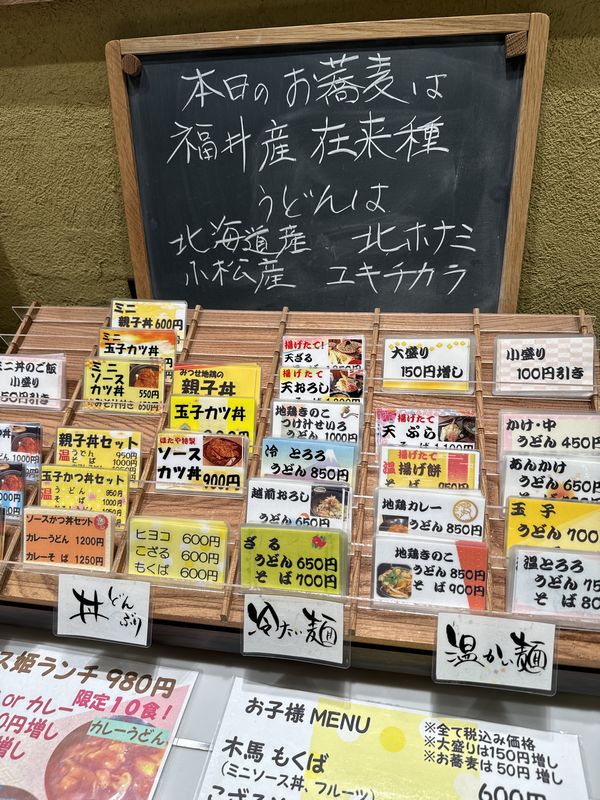 本日のお蕎麦は
福井産 在来種
うどんは
北海道産 北ホナミ
小松産 ユキチカラ
ミニ
親子丼 600円
ミニ
玉子カツ丼
ミニ
ソース
カツ丼 550円
ミニ丼のご飯
小盛り
50円引き
みつせ地鶏の
親子丼
玉子カツ丼
ほたや特製
ソース
カツ丼 900円
親子丼セット
温
うどん 950円
そば 1000円
玉子かつ丼セット
温
うどん 950円
ソースかつ丼セット
カレーうどん 1200円
カレーそば 1250円
ヒヨコ 600円
こざる 600円
もくば 600円
丼 どんぶり
揚げたて!
天ざる
揚げたて!
天おろし
地鶏きのこ
つけ汁せいろ
うどん 1000円
冷 とろろ
うどん 850円
越前おろし
うどん 650円
ざる
うどん 650円
そば 700円
冷たい麺
大盛り
150円増し
小盛り
100円引き
揚げたて
天ぷら
温 揚げ餅
地鶏カレー
うどん 850円
地鶏きのこ
うどん 850円
そば 900円
かけ・中
うどん 450円
あんかけ
うどん 650円
玉子
うどん 700
温とろろ
うどん
温かい麺
ス姫ランチ 980円
or カレー 限定10食!
0円増し
増し
カレーうどん
お子様 MENU
※全て税込み価格
※大盛りは150円増し
※お蕎麦は50円増し
木馬 もくば
(ミニソース丼、フルーツ)
600円